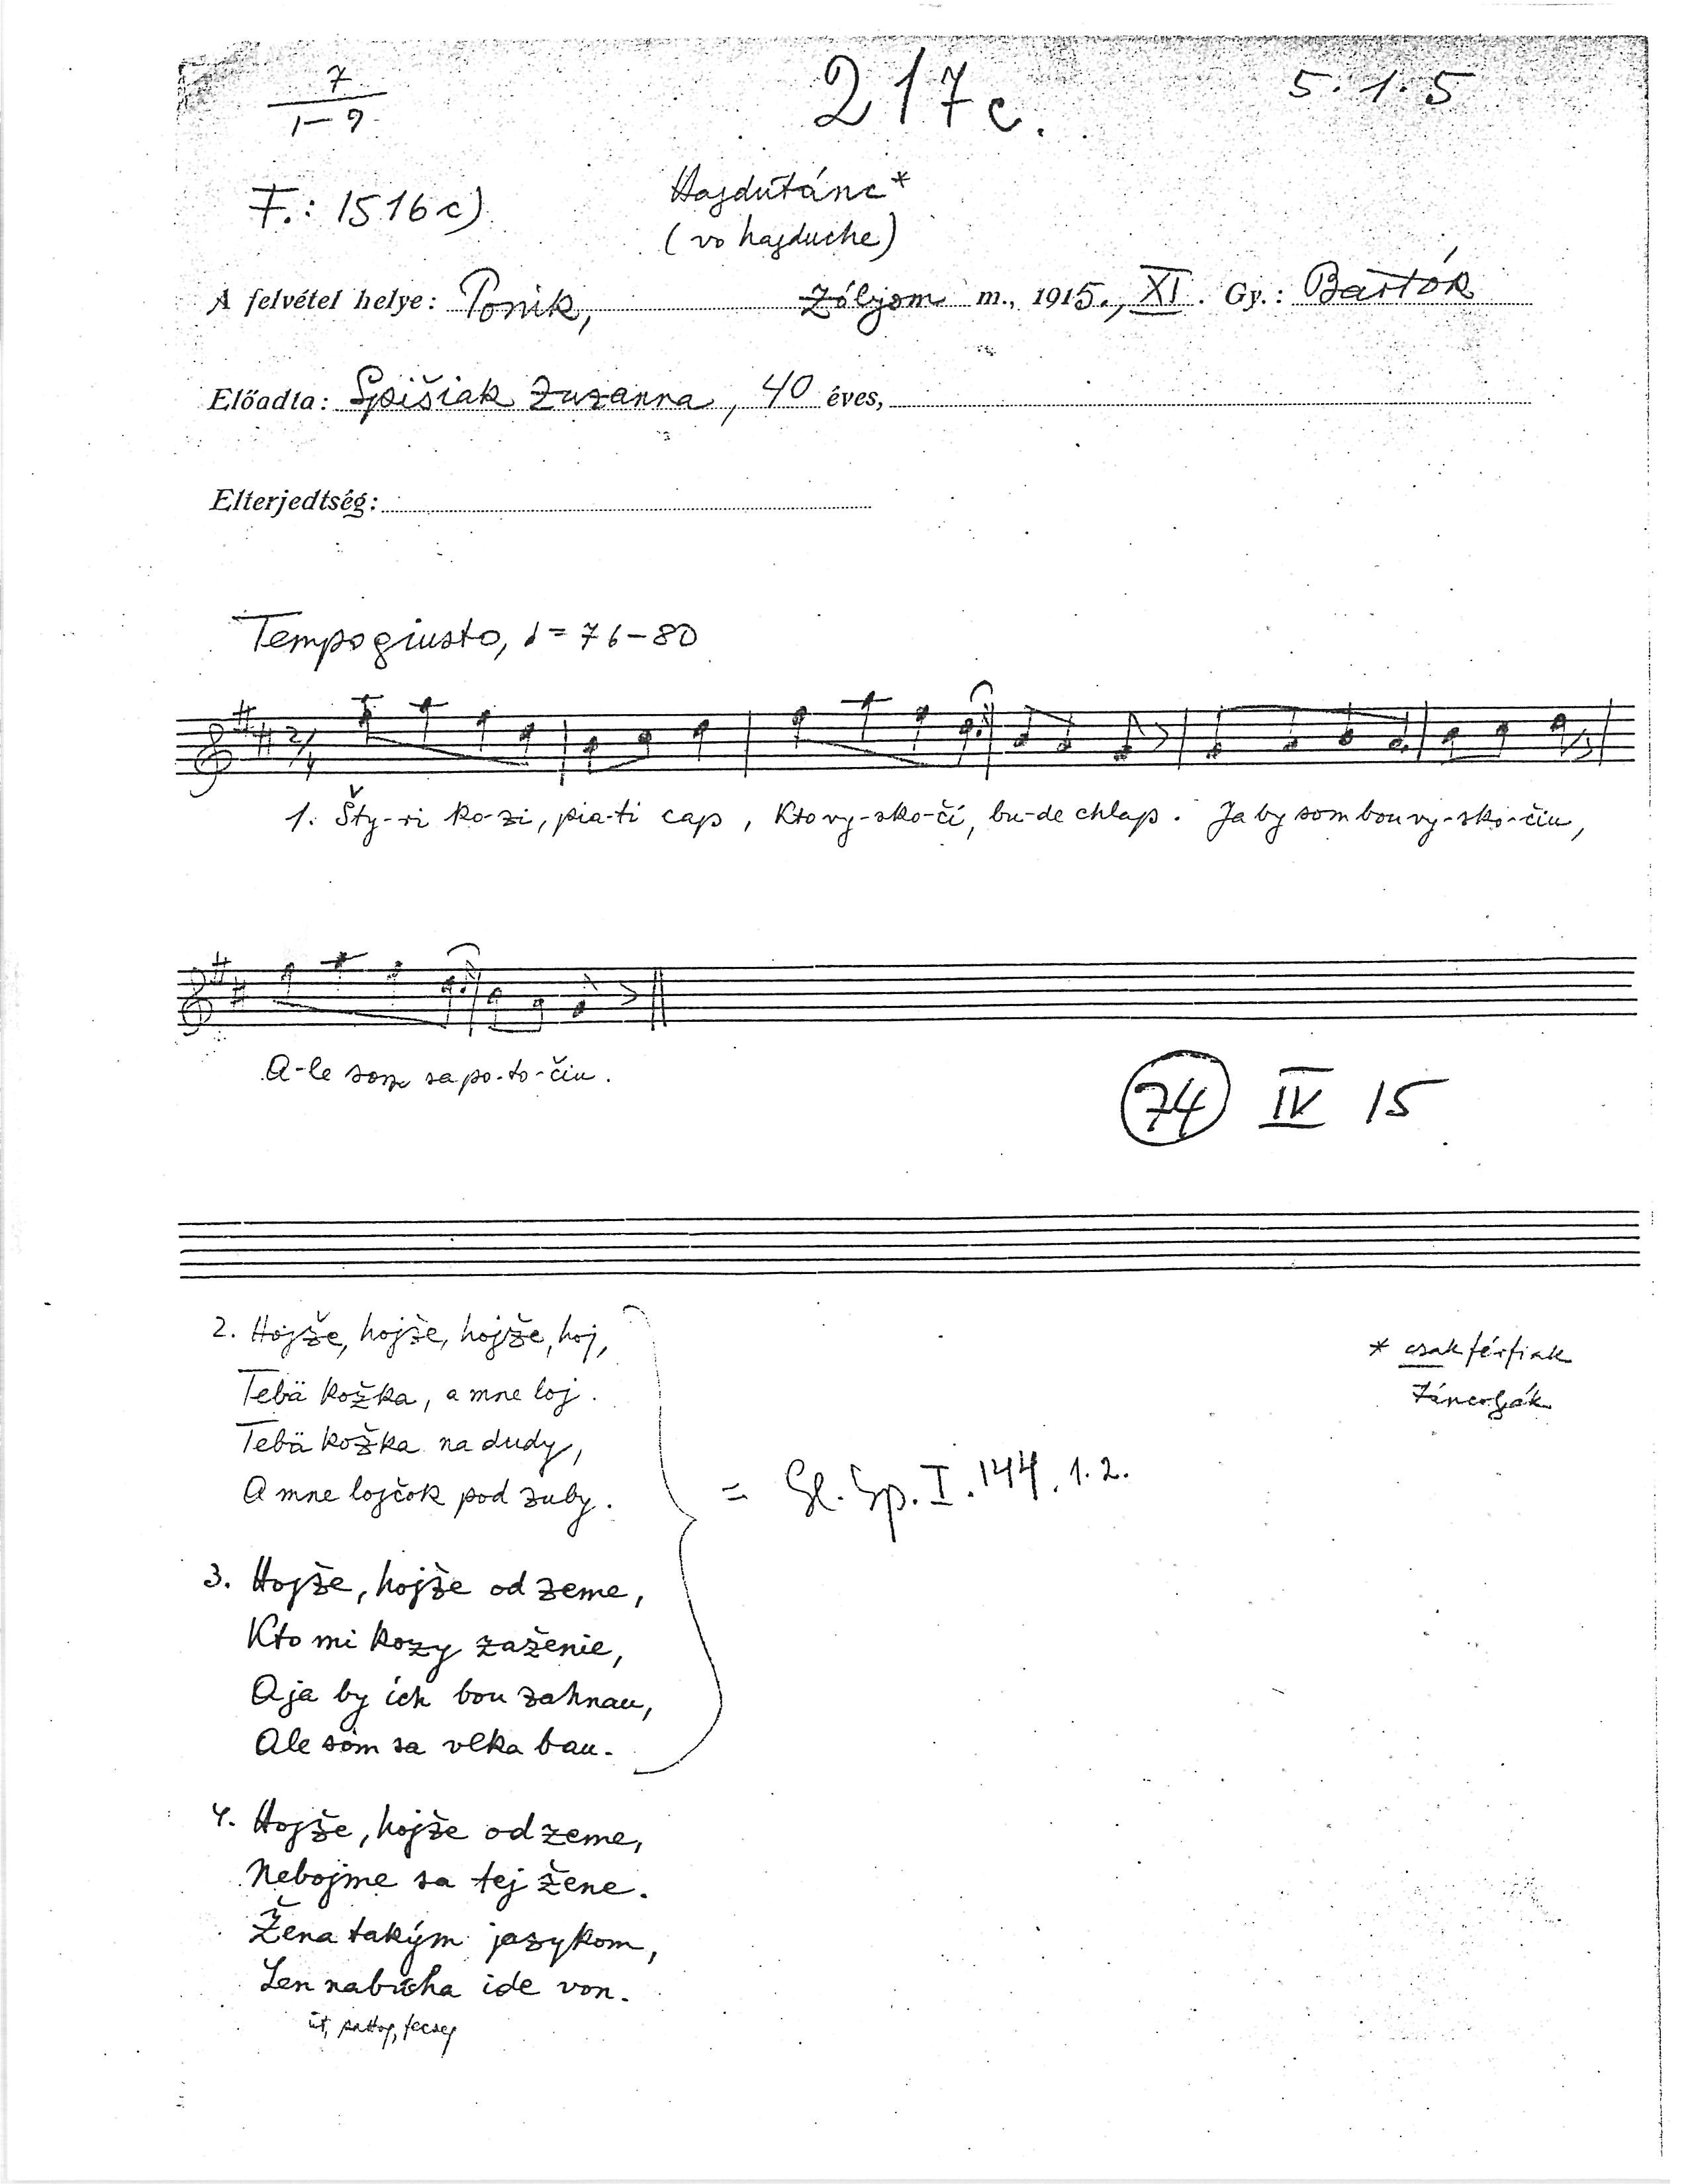 7
1–9
217c.
5.1.5
F.: 1516c)
Hajdútánc*
(vo hajduche)
A felvétel helye: Ponik, Zólyom m., 1915., XI. Gy.: Bartók
Előadta: Spišiak Zuzanna, 40 éves,
Elterjedtség:
Tempo giusto, ♩ = 76–80
2/4
1. Šty-ri ko-zi, pia-ti cap, Kto vy-sko-čí, bu-de chlap. Ja by som bou vy-sko-čiu,
A-le som sa po-to-čiu.
74 IV 15
2. Hojže, hojže, hojže, hoj,
Tebä kožka, a mne loj.
Tebä kožka na dudy,
A mne lojčok pod zuby.
* csak férfiak
táncolják
= Sl. Sp. I. 144. 1. 2.
3. Hojže, hojže od zeme,
Kto mi kozy zaženie,
A ja by ích bou zahnau,
Ale som sa vlka bau.
4. Hojže, hojže od zeme,
Nebojme sa tej žene.
Žena takým jazykom,
Len nabúcha ide von.
üt, pattog, fecseg